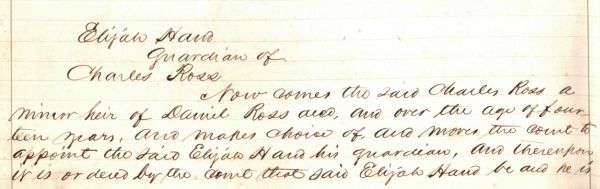 Elijah Hand
Guardian of
Charles Ross
Now comes the said Charles Ross a
minor heir of Daniel Ross decd, and over the age of four-
teen years, and makes choice of and moves the court to
appoint the said Elijah Hand his guardian, and thereupon
it is ordered by the court that said Elijah Hand be and he is